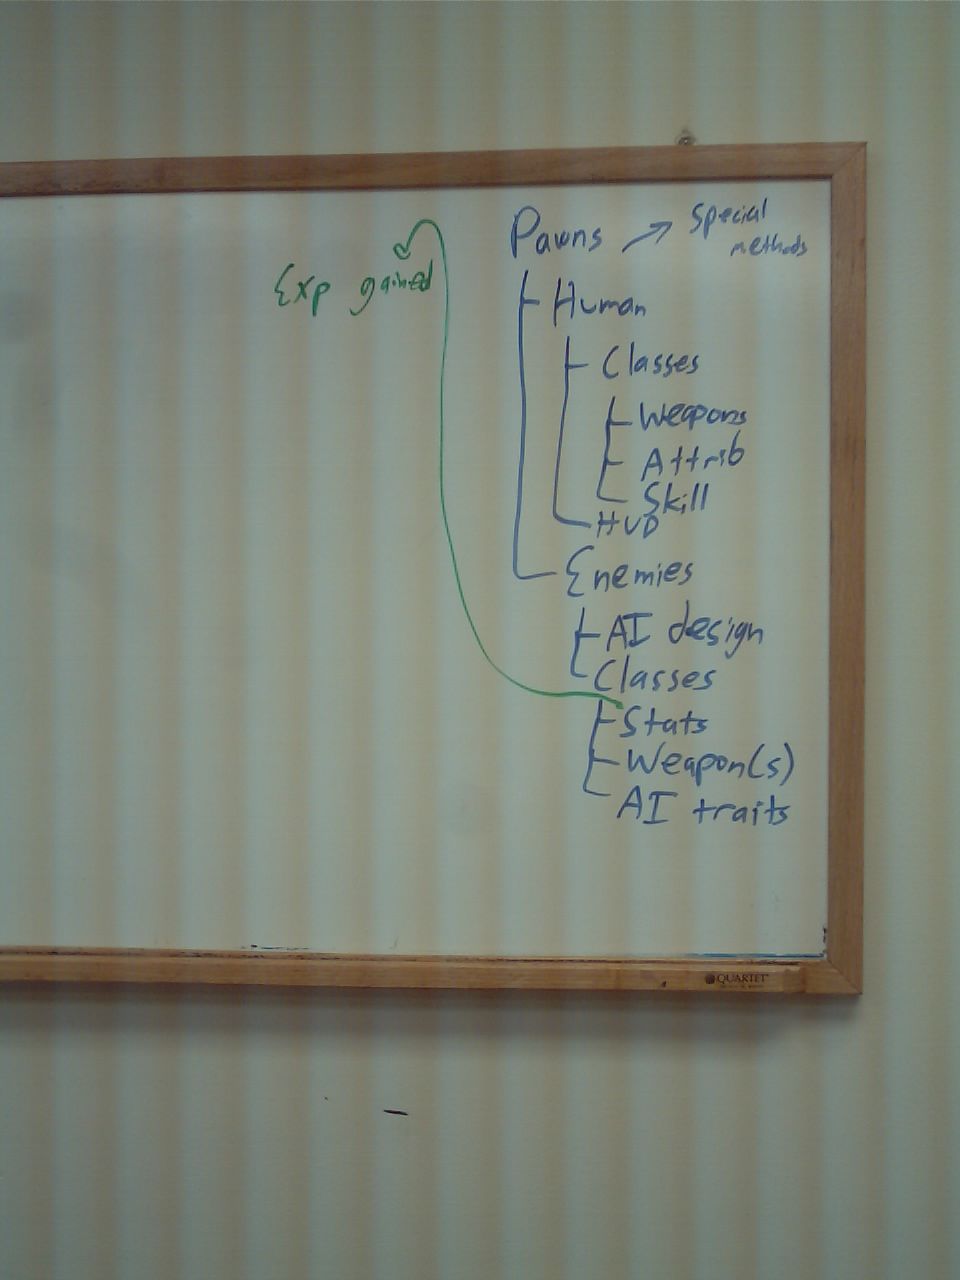 Pawns → Special
methods
Exp gained
Human
Classes
Weapons
Attrib
Skill
HUD
Enemies
AI design
Classes
Stats
Weapon(s)
AI traits
QUARTET